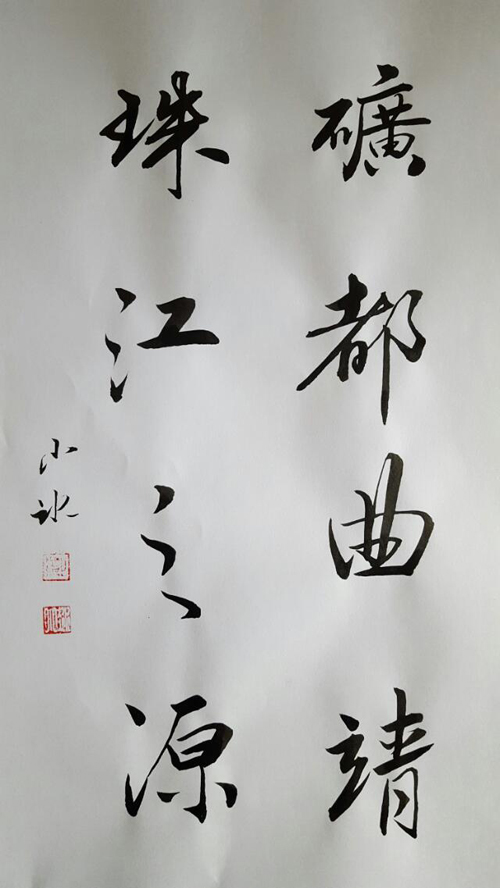 礦都曲靖
珠江之源
小冰